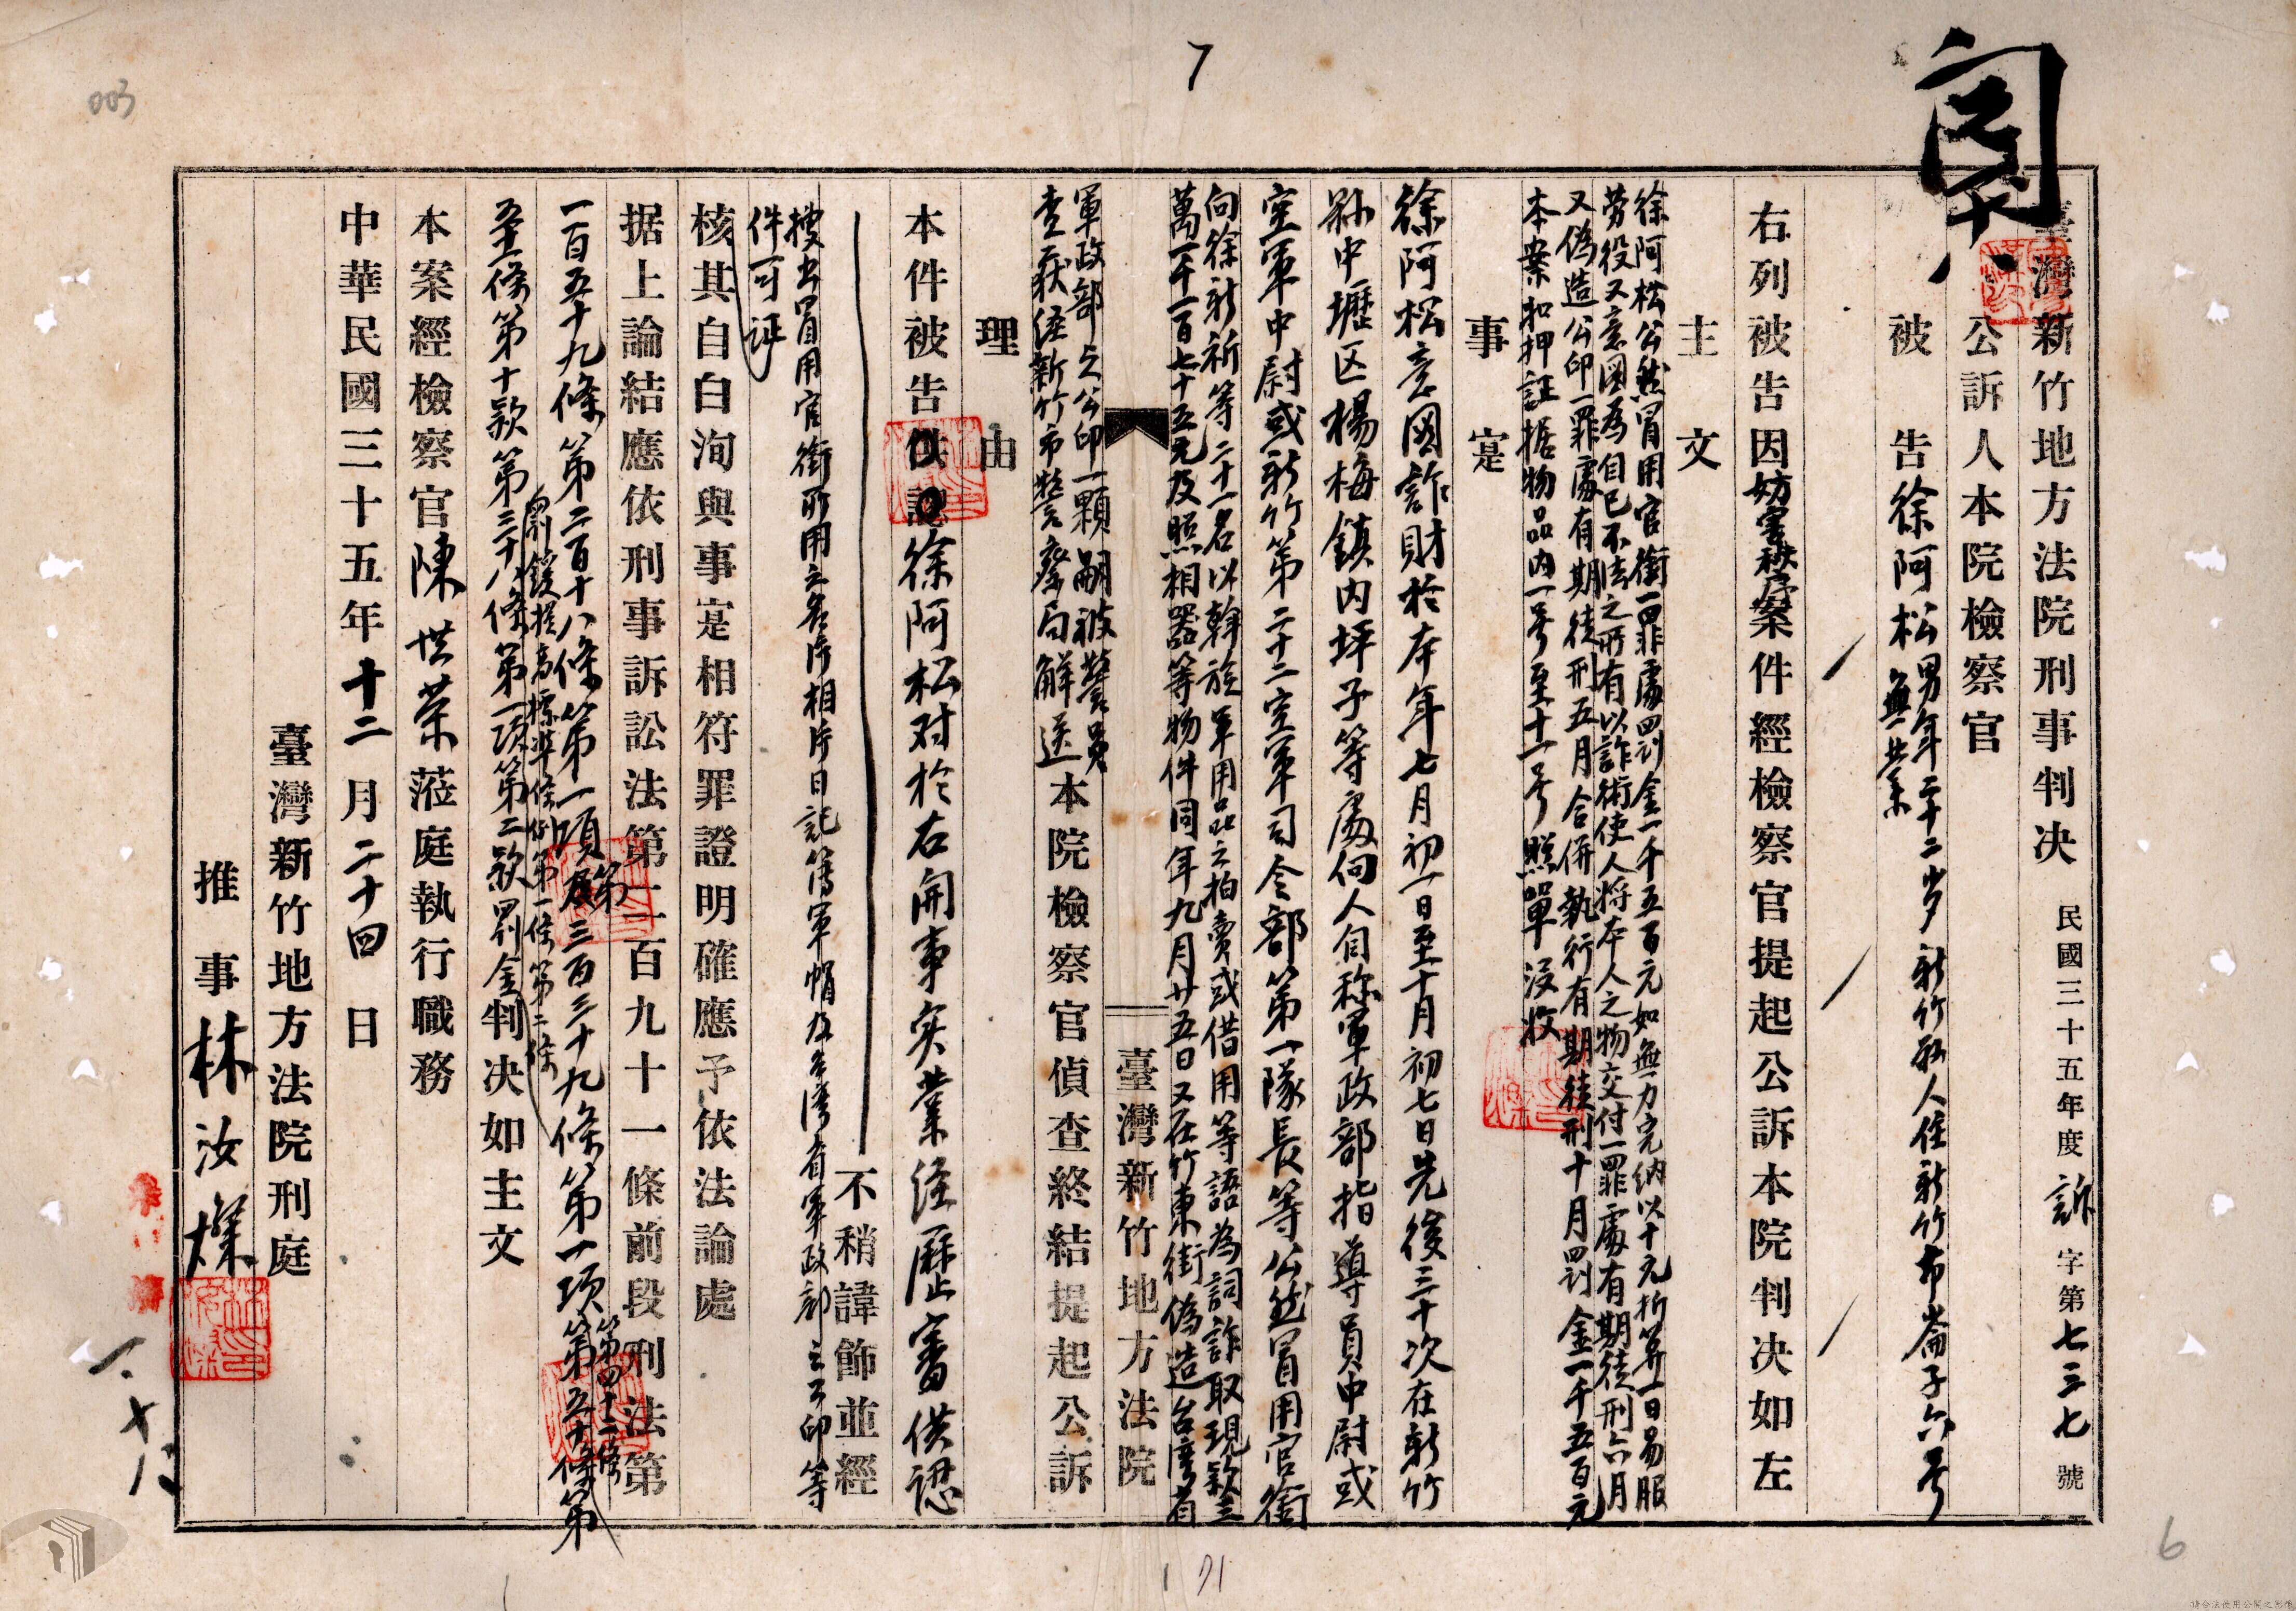 7
003
閱
六
臺灣新竹地方法院刑事判決 民國三十五年度訴字第七三七號
公訴人本院檢察官
被告徐阿松男年二十二岁新竹縣人住新竹市崙子六号
無業
右列被告因妨害秩序案件經檢察官提起公訴本院判決如左
主文
徐阿松公然冒用官銜一罪處罰金一千五百元如無力完納以十元折算一日易服
劳役又意図為自己不法之所有以詐術使人將本人之物交付一罪處有期徒刑六月
又偽造公印一罪處有期徒刑五月合併執行有期徒刑十月罰金一千五百元
本案扣押証据物品内一号至十一号照單没收
事寔
徐阿松意図詐財於本年七月初一日至十月初七日先後三十次在新竹
縣中壢区楊梅鎮内坪子等處向人自称軍政部指導員中尉或
空軍中尉或新竹第二十二空軍司令部第一隊長等公然冒用官銜
向徐新祈等二十一名以斡旋軍用品之拍賣或借用等語為詞詐取現款三
萬一千一百七十五元及照相器等物件同年九月廿五日又在竹東街偽造台湾省
臺灣新竹地方法院
軍政部之公印一顆嗣被警員
查获經新竹市警察局解送本院檢察官偵查終結提起公訴
理由
本件被告徐阿松对於右開事实業經歷審供認
不稍諱飾並經
搜出冒用官銜所用之名片相片日記簿軍帽及台湾省軍政部之公印等
件可証
核其自白洵與事寔相符罪證明確應予依法論處
据上論結應依刑事訴訟法第二百九十一條前段刑法第
一百五十九條第二百十八條第一項第三百三十九條第一項第四十二條第五十條第
罰鍰提高標準條例第一條第二條
五十一條第十款第三十八條第一項第二款罰金判決如主文
本案經檢察官陳世荣蒞庭執行職務
中華民國三十五年十二月二十四日
臺灣新竹地方法院刑庭
推事林汝燦
6
171
請合法使用公開之影像